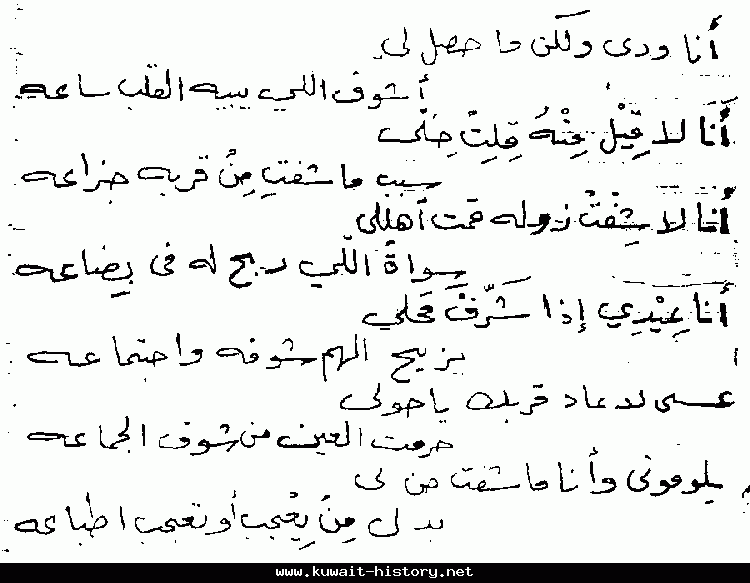 أنا ودى ولكن ما حصل لي
أشوف اللي يبيه القلب ساعه
أَنَا لا قِيْل عِنْهُ قِلِتْ خِلّى
سبب ما شفتِ مِنْ قربه جزاعه
أنا لا شِفْتْ زوله قمت أهللى
سواةْ اللّي ربح له فى بِضاعه
أَنَا عِيْدِي إذا شَرَّفْ مَحَلي
يزيح الهم شوفه واجتماعه
عسى لا عاد قربك ياحولى
حرمت العين من شوف الجماعه
يلومونى وأنا ما شفت من لى
بدلى مِنْ يِعْجِب أو تعجب اطباعه
www.kuwait-history.net